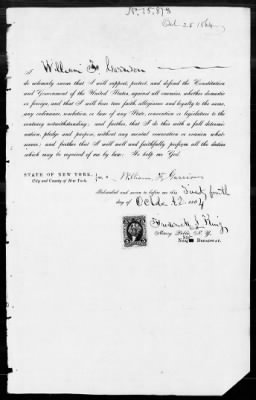 No. 75,878
Oct 25 1864
I, William F. Garrison
do solemnly swear that I will support, protect, and defend the Constitution
and Government of the United States, against all enemies, whether domestic
or foreign, and that I will bear true faith, allegiance and loyalty to the same,
any ordinance, resolution, or law of any State, convention or legislation to the
contrary notwithstanding; and further, that I do this with a full determi-
nation, pledge and purpose, without any mental reservation or evasion what-
soever; and further that I will well and faithfully perform all the duties
which may be required of me by law: So help me God.
STATE OF NEW YORK,
City and County of New York.
ss.
William F. Garrison
Subscribed and sworn to before me this
day of October 1864
Frederick L. King
Notary Public, N. Y.
BROADWAY.